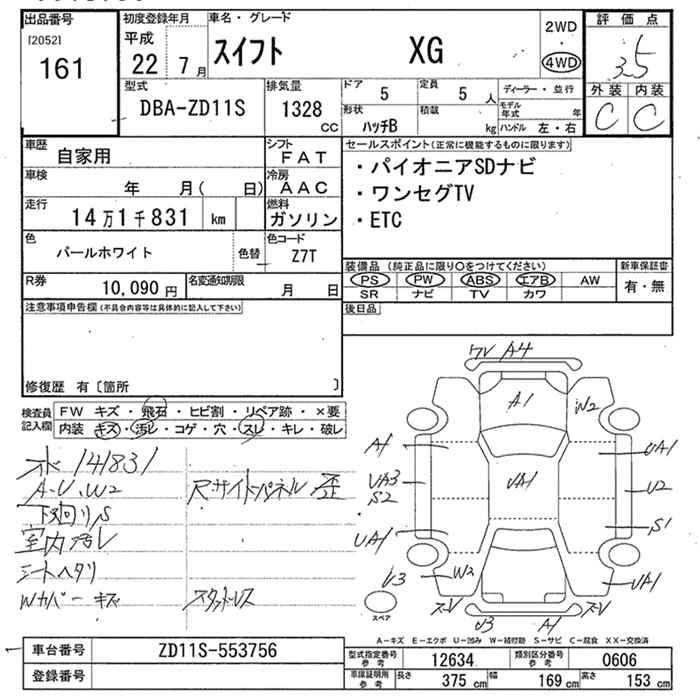 出品番号
[2052]
161
初度登録年月
平成
22 7月
車名・グレード
スイフト XG
2WD
・
4WD
評価点
3.5
外装 内装
C C
型式
DBA-ZD11S
排気量
1328
cc
ドア 5
定員 5人
形状
ハッチB
積載
kg
ディーラー・並行
モデル年式 年
ハンドル 左・右
車歴
自家用
シフト
FAT
車検
年 月( 日)
冷房
AAC
走行
14万1千831 km
燃料
ガソリン
色
パールホワイト
色替
色コード
Z7T
R券
10,090円
名変通知期限
月 日
セールスポイント(正常に機能するものに限ります)
・パイオニアSDナビ
・ワンセグTV
・ETC
装備品(純正品に限り○をつけてください)
PS PW ABS エアB AW
SR ナビ TV カワ
新車保証書
有・無
後日品
注意事項申告欄(不具合内容等は具体的に記入して下さい)
修復歴 有〔箇所 〕
検査員
記入欄
FW キズ・飛石・ヒビ割・リペア跡・×要
内装 キズ・汚レ・コゲ・穴・スレ・キレ・破レ
141831
A・U、W2
下廻りS
室内汚レ
シートヘタリ
Wカバーキズ
R.サイドパネル 歪
スタッドレス
ワレ A4
A1
W2
A1
UA1
UA3
S2
UA1
U2
S1
UA1
W2
UA1
U3
スペア
U3
A1
A-キズ E-エクボ U-凹み W-補修跡 S-サビ C-腐食 XX-交換済
車台番号
ZD11S-553756
登録番号
型式指定番号
参考
12634
類別区分番号
参考
0606
車庫証明用
参考
長さ 375cm
幅 169cm
高さ 153cm